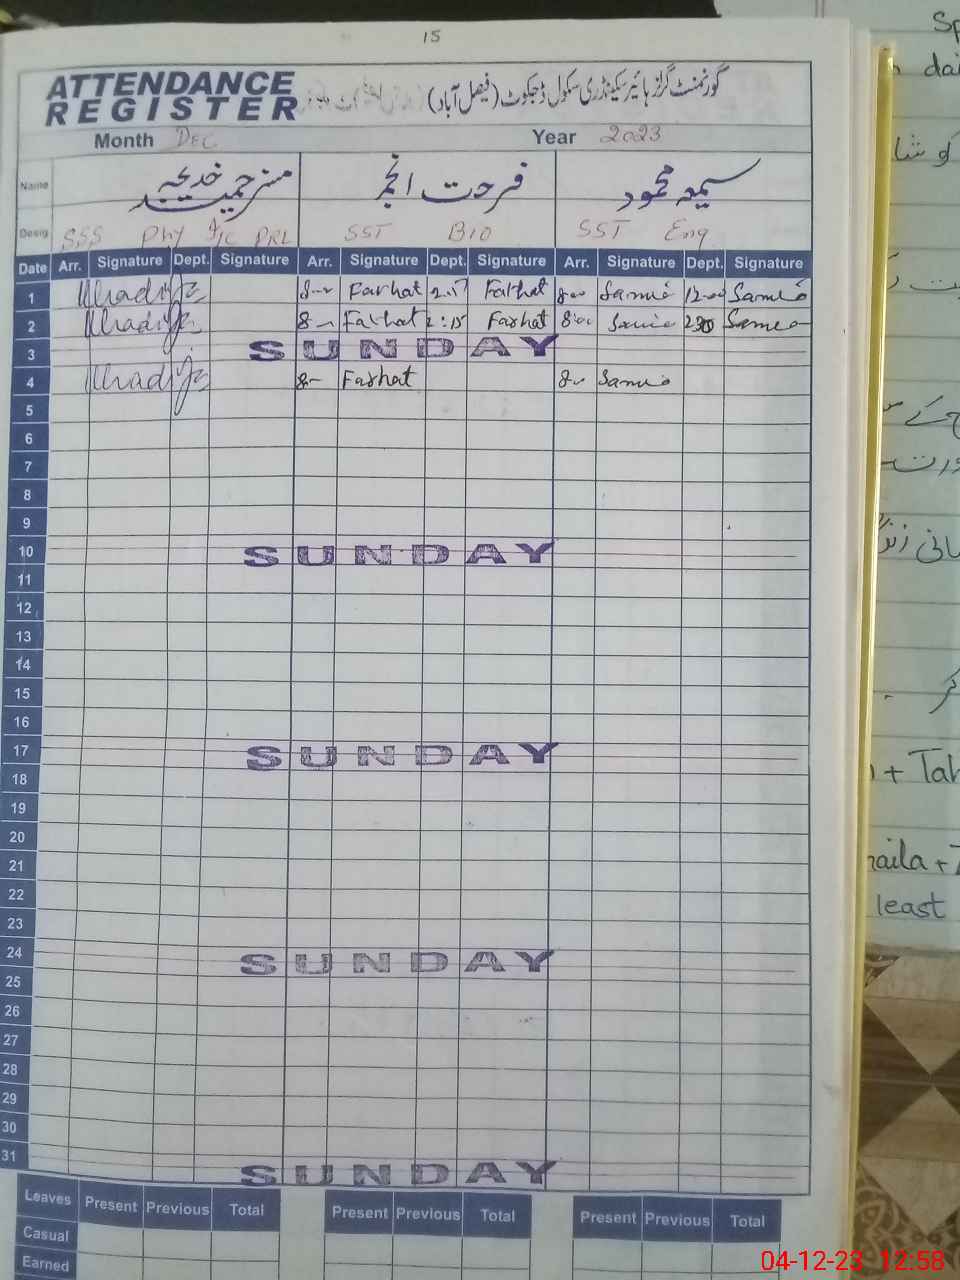 15
ATTENDANCE REGISTER
گورنمنٹ گرلز ہائیر سیکنڈری سکول ڈجکوٹ (فیصل آباد)
Month DEC Year 2023
Name مسز حمید خدیجہ فرحت انجم سمیعہ محمود
Desig SSS Phy I/C PRL SST BIO SST Eng
Date Arr. Signature Dept. Signature Arr. Signature Dept. Signature Arr. Signature Dept. Signature
1 Khadija Farhat 2:15 Farhat 8:00 Samia 12:00 Samia
2 Khadija Farhat 2:15 Farhat 8:00 Samia 2:30 Samia
3 SUNDAY
4 Khadija Farhat Samia
5
6
7
8
9
10 SUNDAY
11
12
13
14
15
16
17 SUNDAY
18
19
20
21
22
23
24 SUNDAY
25
26
27
28
29
30
31 SUNDAY
Leaves Present Previous Total Present Previous Total Present Previous Total
Casual
Earned
+ Tah
least
04-12-23 12:58